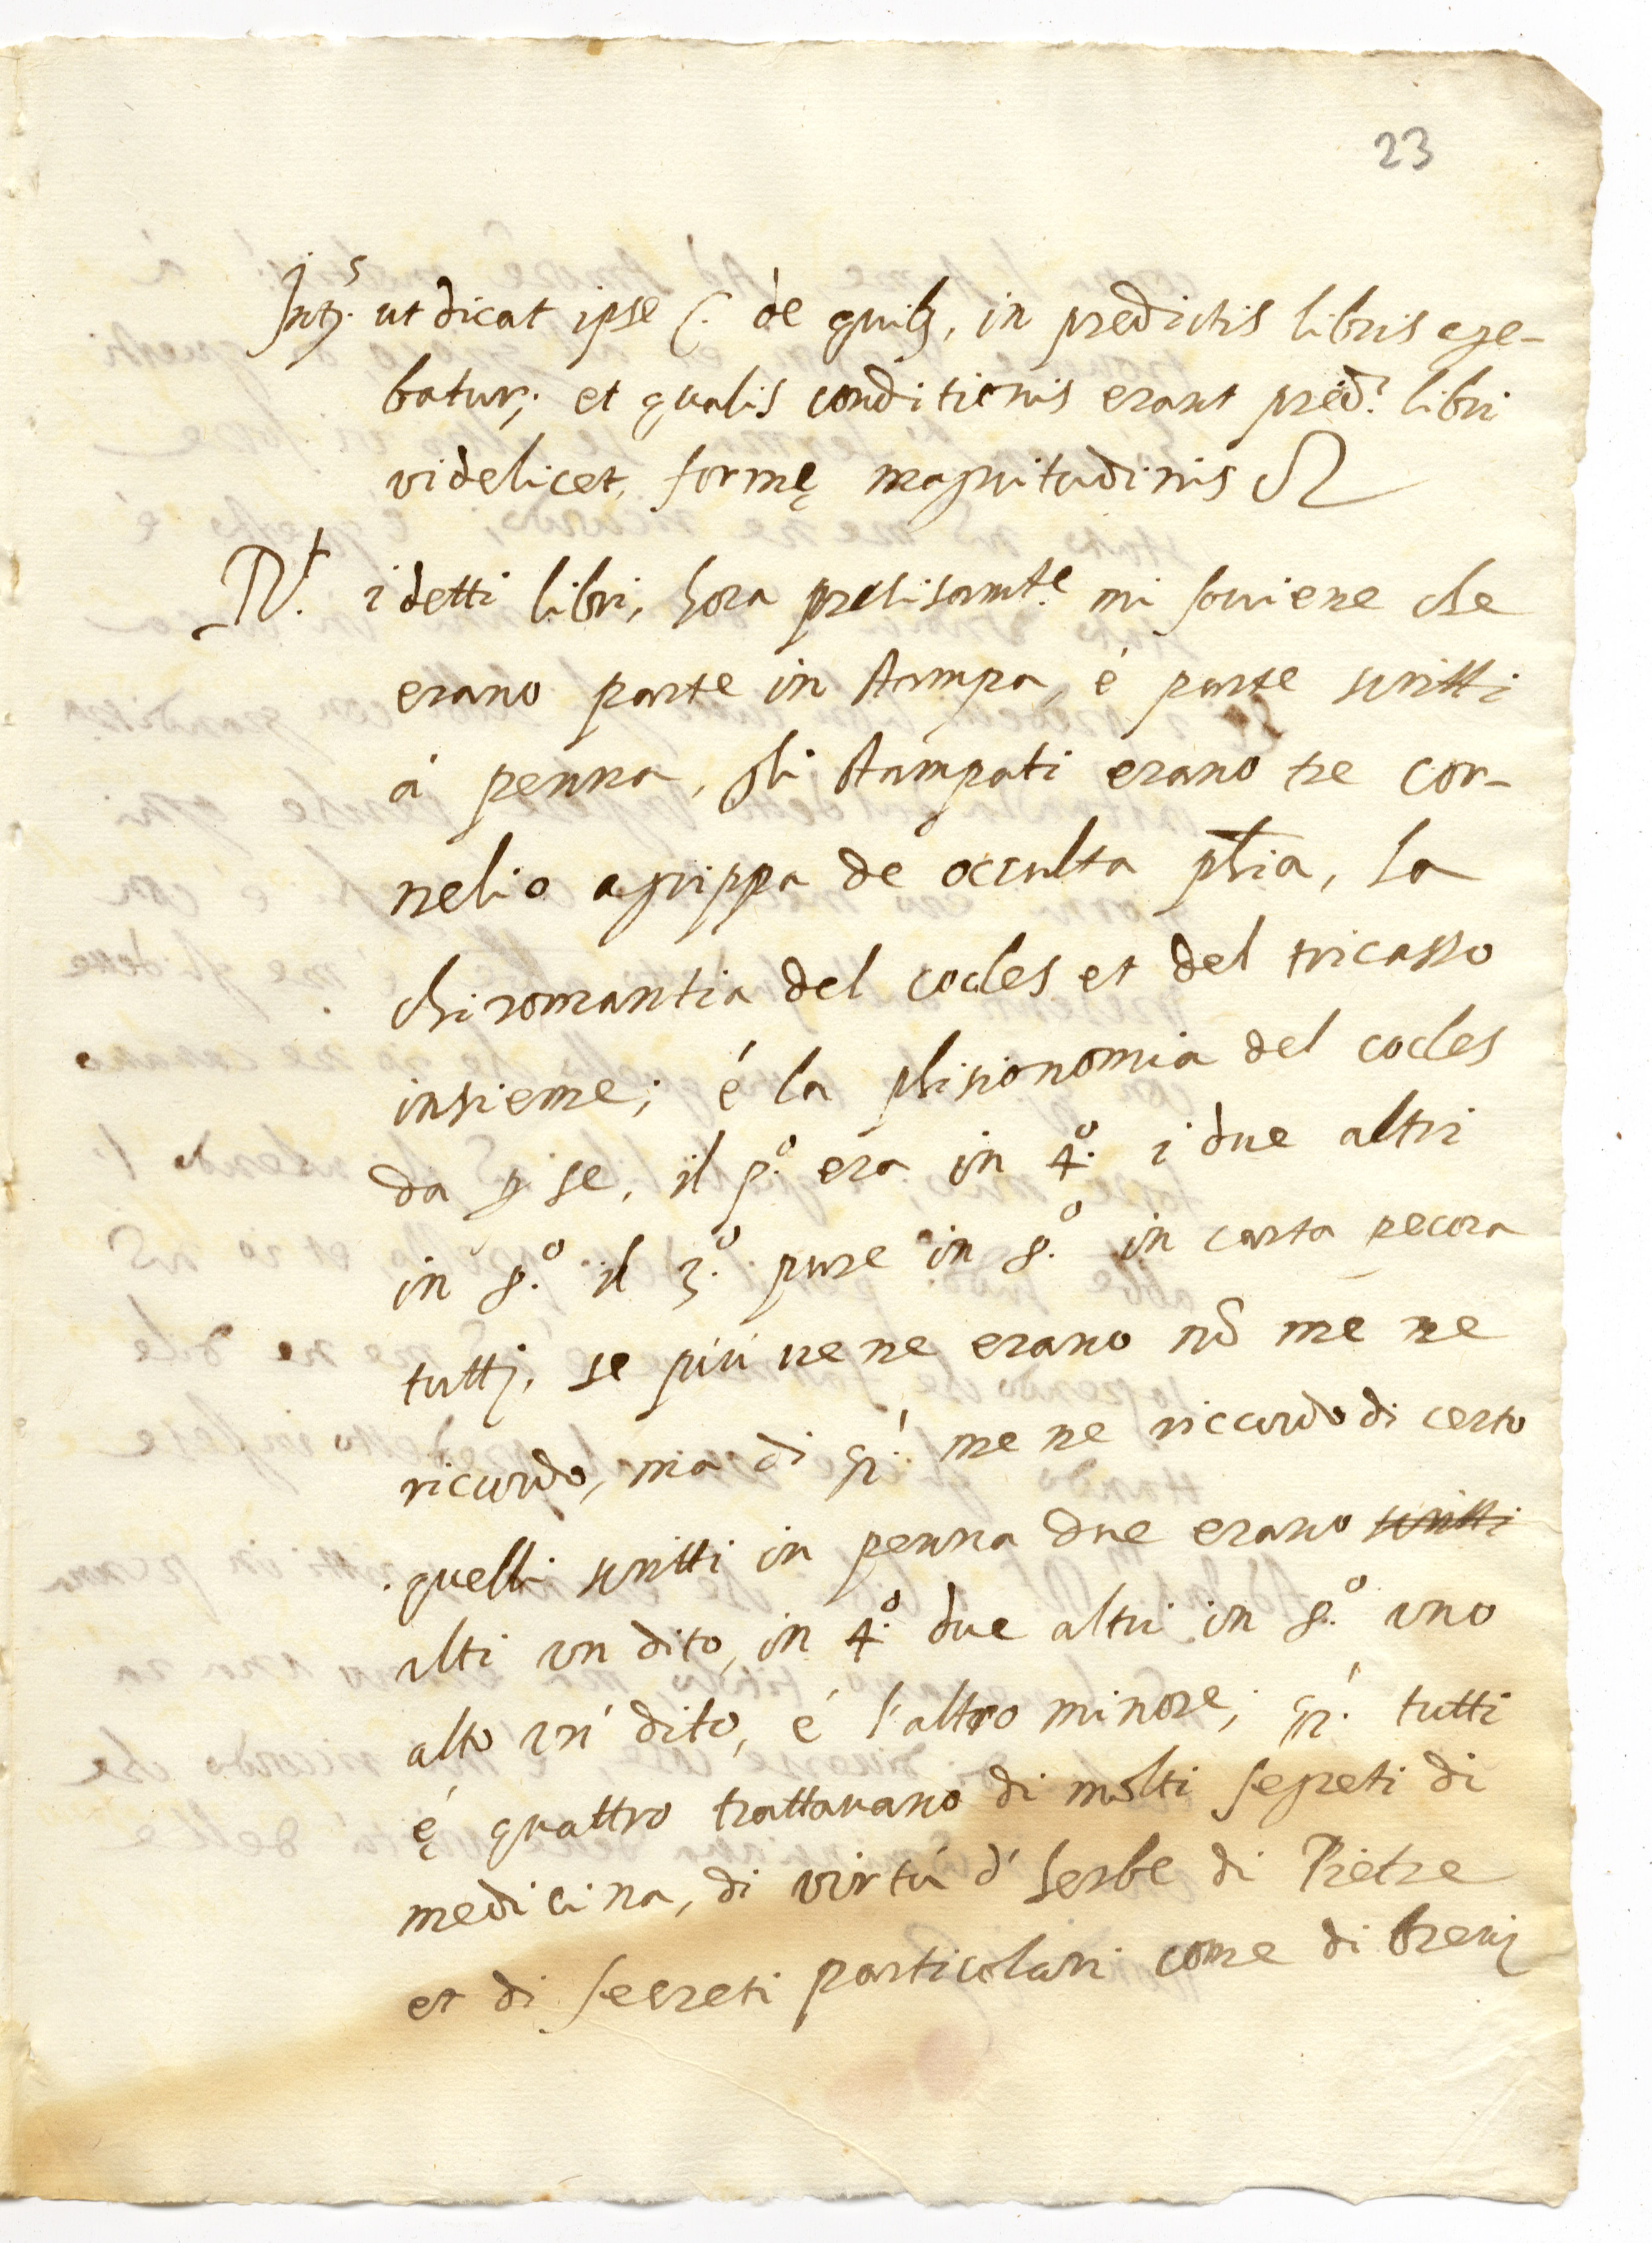 23
Int.s ut dicat ipse C. de quib9, in predictis libris age-
batur; et qualis conditionis erant pred.i libri
videlicet, formę magnitudinis
R.t i detti libri, hora precisamt.e mi souiene che
erano parte in stampa, é parte scritti
á penna, gli stampati erano tre cor-
nelio agrippa de occulta phia, la
chiromantia del cocles et del tricasso
insieme; é la phisionomia del cocles
da p se, il p.o era in 4.o i due altri
in 8.o il 3.o pure in 8.o in carta pecora
tuttj, se piú ue ne erano nō me ne
ricordo, ma di qi me ne riccordo di certo
quelli scritti in penna due erano scritti
alti un dito, in 4.o due altri in 8.o uno
alto un' dito, é l'altro minore; qi tutti
ę quattro trattauano di molti segreti di
medicina, di virtú d' herbe di Pietre
et di secreti particolari come di breuj